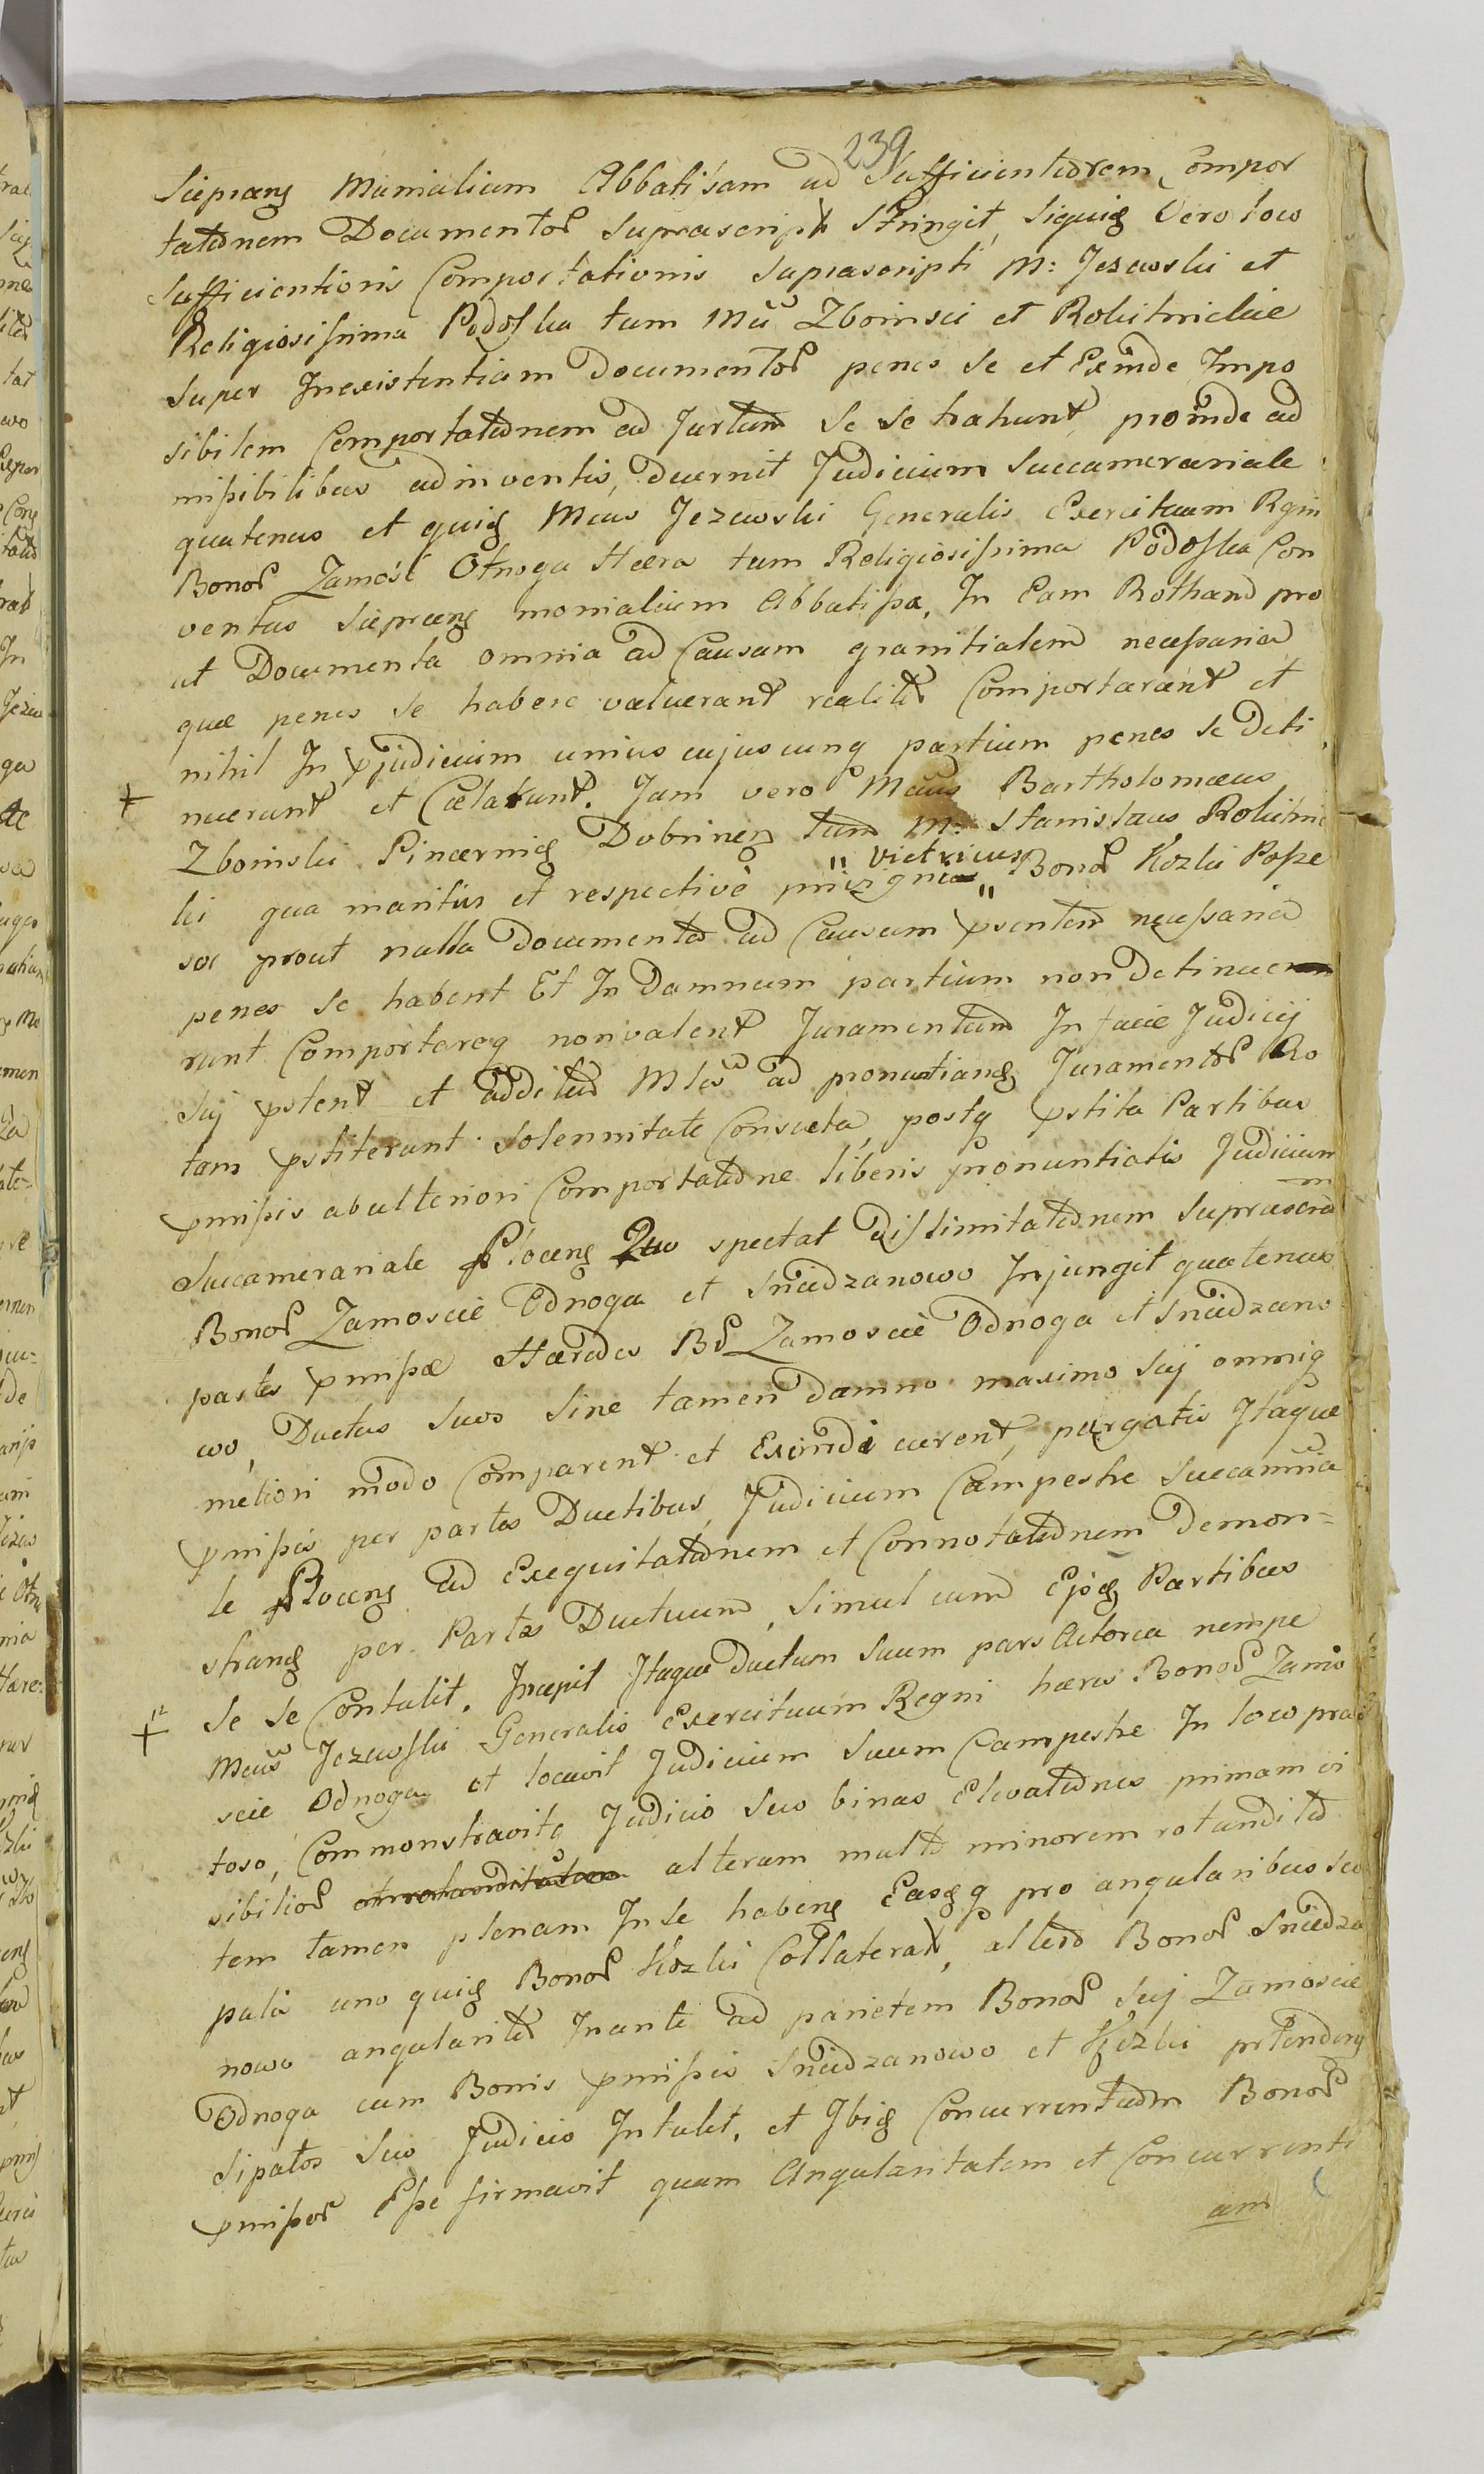 239
Sieprcens Monialium Abbatissam ad Sufficientiorem Compor
tationem Documentor suprascript Stringit, siquid Vero loco
Sufficientioris Comportationis suprascripti M: Jezewski et
Religiosissima Podoska tum Mci Zboinscii et Rokitnickie
super Inexistentiam Documentor penes se et Exinde Impo
sibilem Comportationem ad Jurtum se se trahunt, proinde ad
missibilibus adinventis, decernit Judicium Succamerariale
quatenus et quid Mcus Jezewski Generalis Exercituum Rgni
Bonor Zamość Otnoga Hæra tum Religiosissima Podoska Con
ventus Sieprcens monialium Abbatissa, In Eam Rothand pro
ut Documenta omnia ad Causam granitialem necessaria
quæ penes se habere valuerant realiter Comportarant et
nihil In pjudicium unius cujuscunq partium penes se Deti
nuerunt et Cælarunt. Jam vero Mcus Bartholomæus
Zboinski Pincernid Dobrinen tum M: Stanislaus Rokitnic
ki qua maritus et respective privignus " victricus " Bonor Kozki Posse
sor prout nulla Documenta ad Causam psentem necessaria
penes se habent Et In Damnum partium non Detinue
runt Comportareq non valent Juramentum In facie Judicij
sui pstent et additus Mles ad pronuntiand Juramentor Ro
tam pstiterunt solennitate Consueta, postq pstita Partibus
pmissis ab ulteriori Comportatione liberis pronuntiatis Judicium
Succamerariale Plocens Quo spectat dislimitationem suprascrem
Bonor Zamoscie Odnoga et Sniedzanowo Injungit quatenus
partes pmissæ Hæredes Br Zamoscie Odnoga et Sniedzano
wo, Ductus suos sine tamen damno maximo sui omniq
meliori modo Comparent et Exinde curent, purgatis Itaque
pmissis per partes Ductibus, Judicium Campestre Succamria
le Plocens ad Exequitationem et Connotationem Demon=
strand per Partes Ductuum, simul cum Ejsd Partibus
se se Contulit. Incepit Itaque ductum suum pars Actorea nempe
Mcus Jezewski Generalis Exercituum Regni hæres Bonor Zamo
scie Odnoga et locavit Judicium suum Campestre In loco pra
toso, Commonstravitq Judicio suo binas Elevationes primam vi
sibilior alteram multo minorem rotundita
tem tamen plenam In se habens Easdq pro angularibus sco
pula uno quid Bonor Kozki Collateral, altero Bonor Sniedza
nowo angulariter Inante ad parietem Bonor sui Zamoscie
Odnoga cum Bonis pmissis Sniedzanowo et Kozki prtendens
sipatos suo Judicio Intulit, et Ibid Concurrentiam Bonor
pmissor Esse firmavit quam Angularitatem et Concurrenti
am